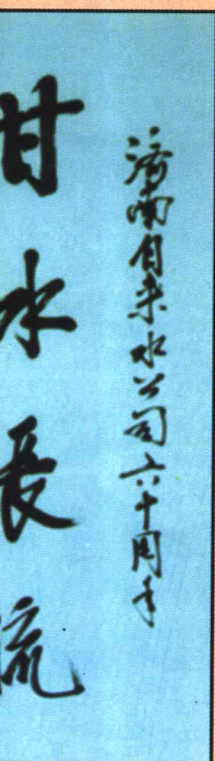 济南自来水公司六十周年
甘水长流